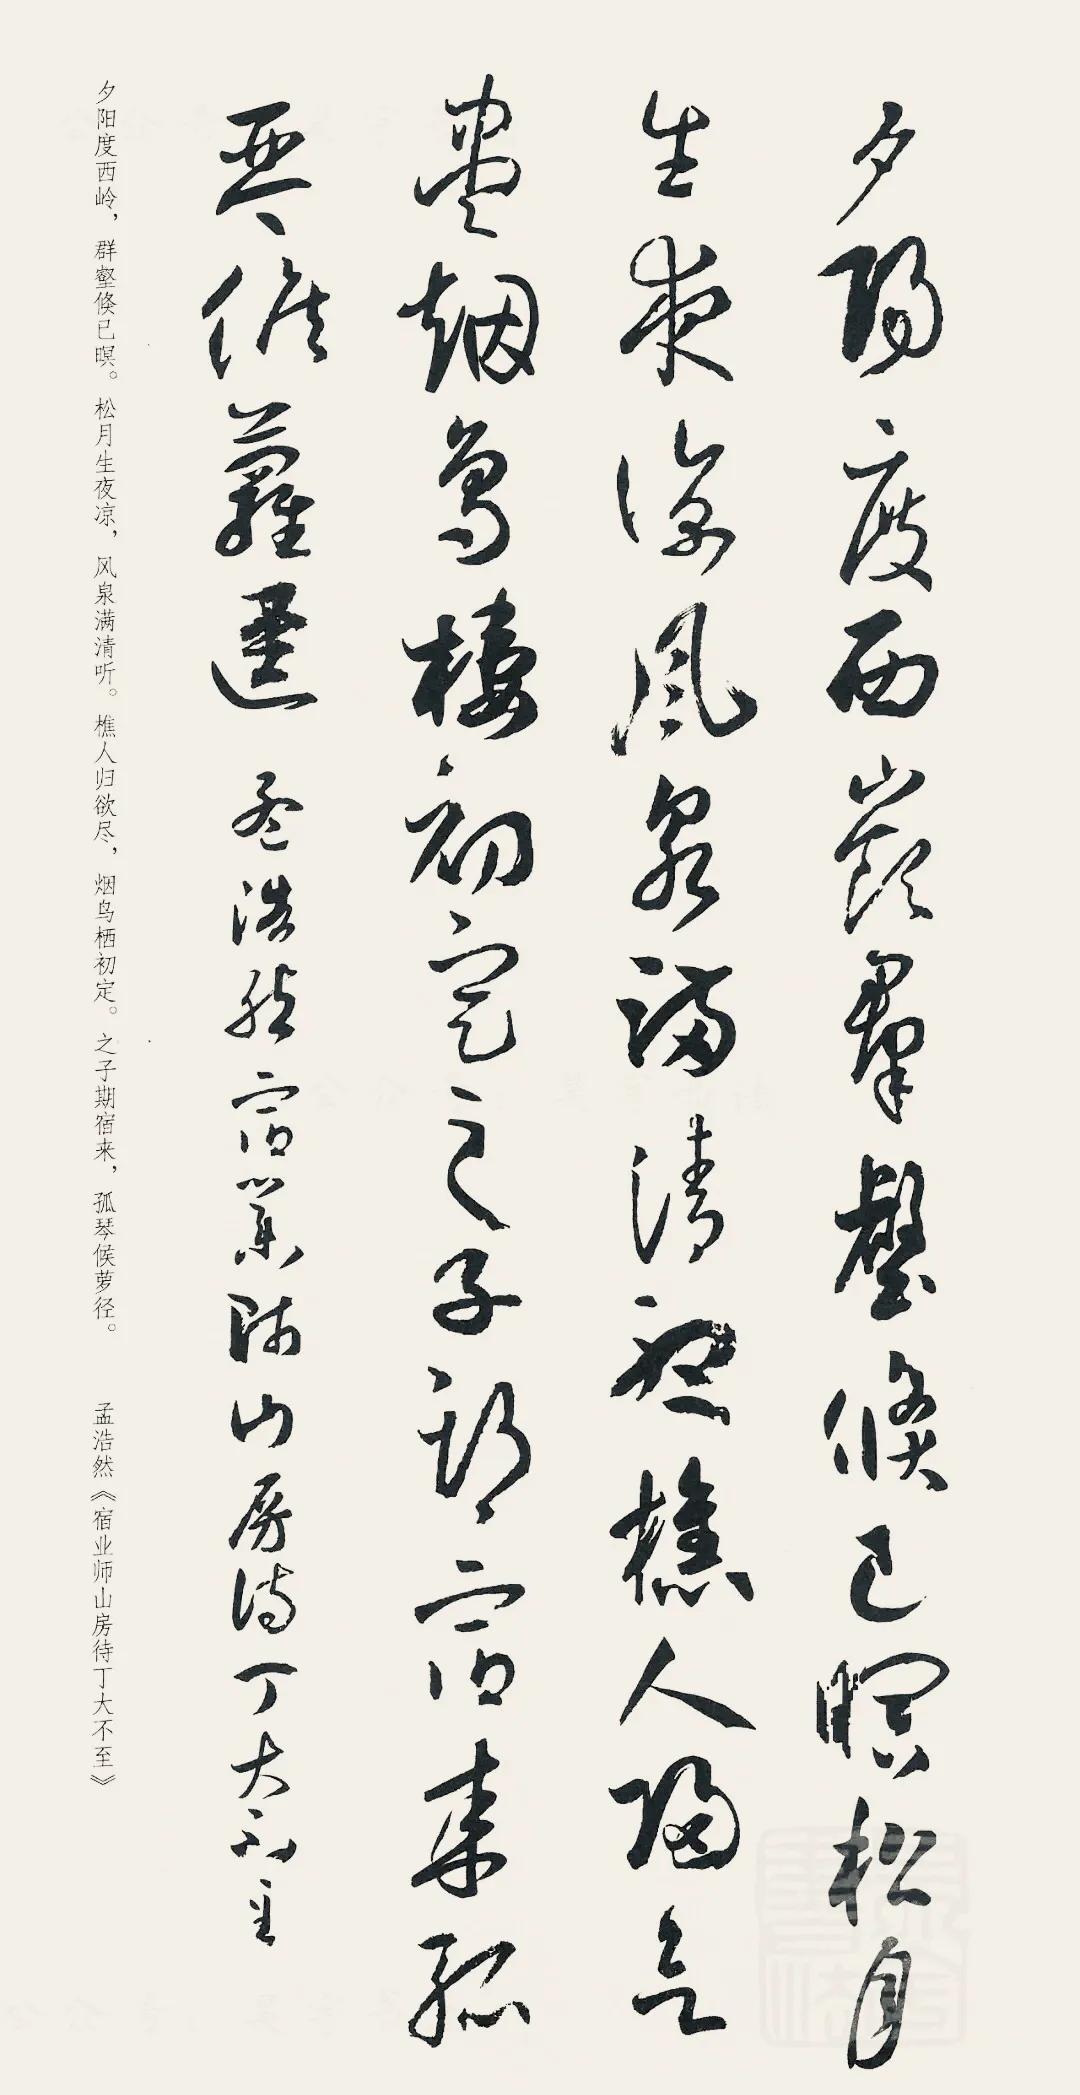 夕陽度西嶺羣壑倏已暝松月
生夜涼風泉滿清聽樵人歸欲
盡烟鳥棲初定之子期宿來孤
琴候蘿逕 孟浩然宿業師山房待丁大不至
夕阳度西岭，群壑倏已暝。松月生夜凉，风泉满清听。樵人归欲尽，烟鸟栖初定。之子期宿来，孤琴候萝径。 孟浩然《宿业师山房待丁大不至》